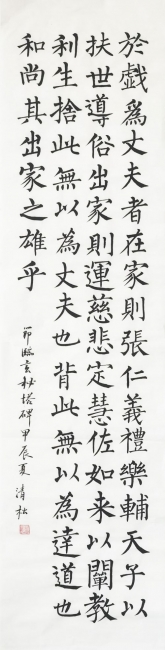 於戲為丈夫者在家則張仁義禮樂輔天子以
扶世導俗出家則運慈悲定慧佐如来以闡教
利生捨此無以為丈夫也背此無以為達道也
和尚其出家之雄乎
節臨玄秘塔碑甲辰夏清松